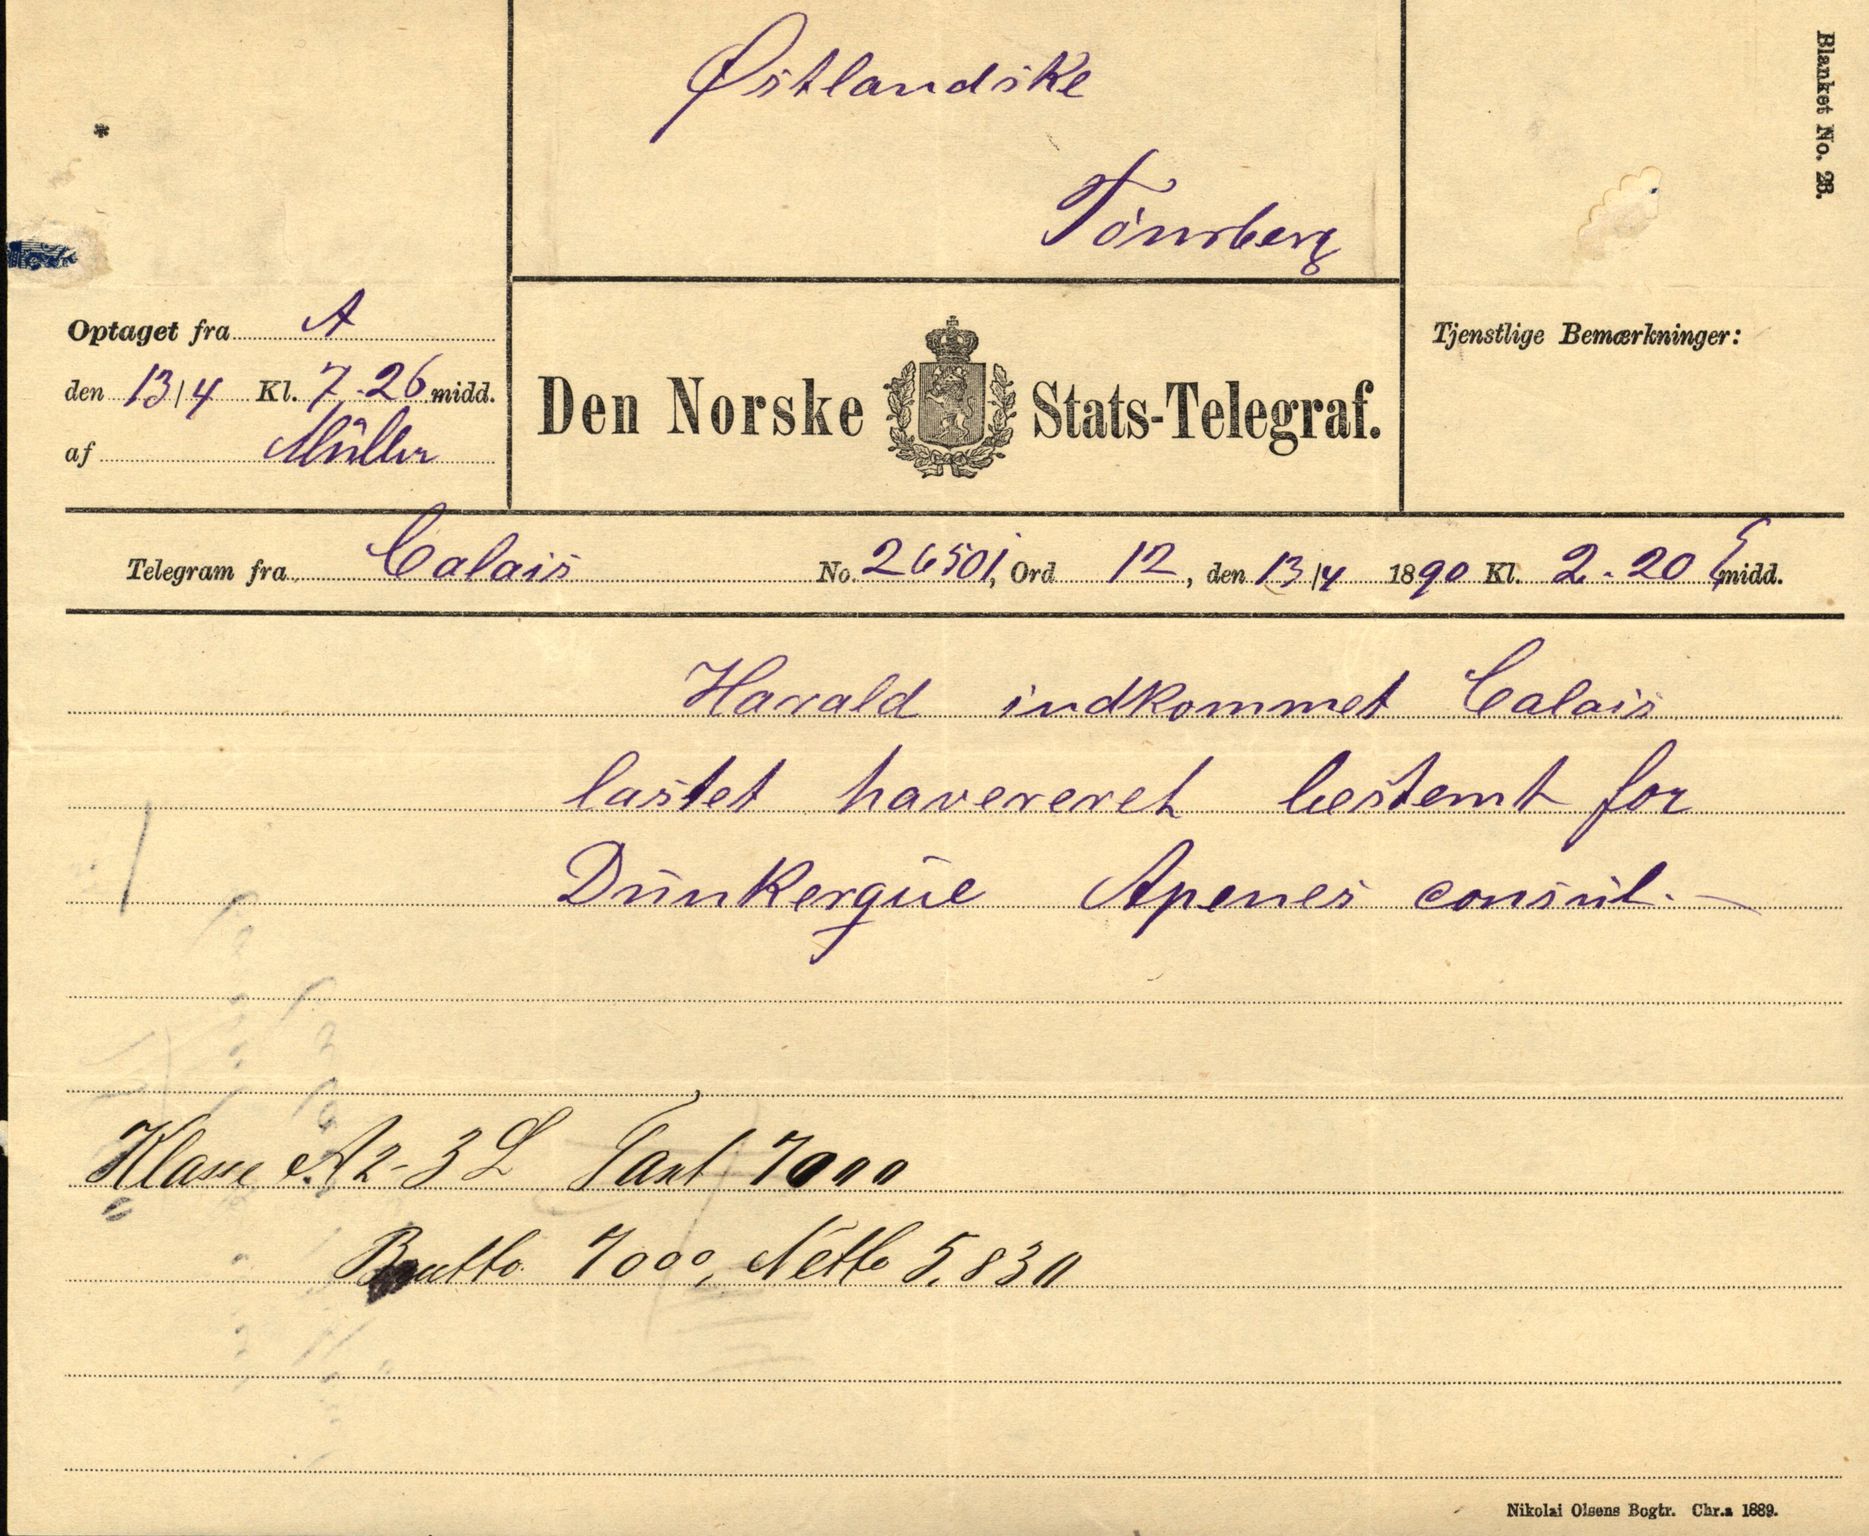 Blanket No. 23.
Østlandske
Tönsberg
Optaget fra A
den 13/4 Kl. 7.26 midd.
af Müller
Den Norske Stats-Telegraf.
Tjenstlige Bemærkninger:
Telegram fra Calais No. 26501, Ord 12, den 13/4 1890 Kl. 2.20 E midd.
Harald indkommet Calais
lastet havereret bestemt for
Dunkerque Apenes consul.-
Klasse A2-3 L Taxt 7000
Brutto 7000, Netto 5.830
Nikolai Olsens Bogtr. Chr.a 1889.